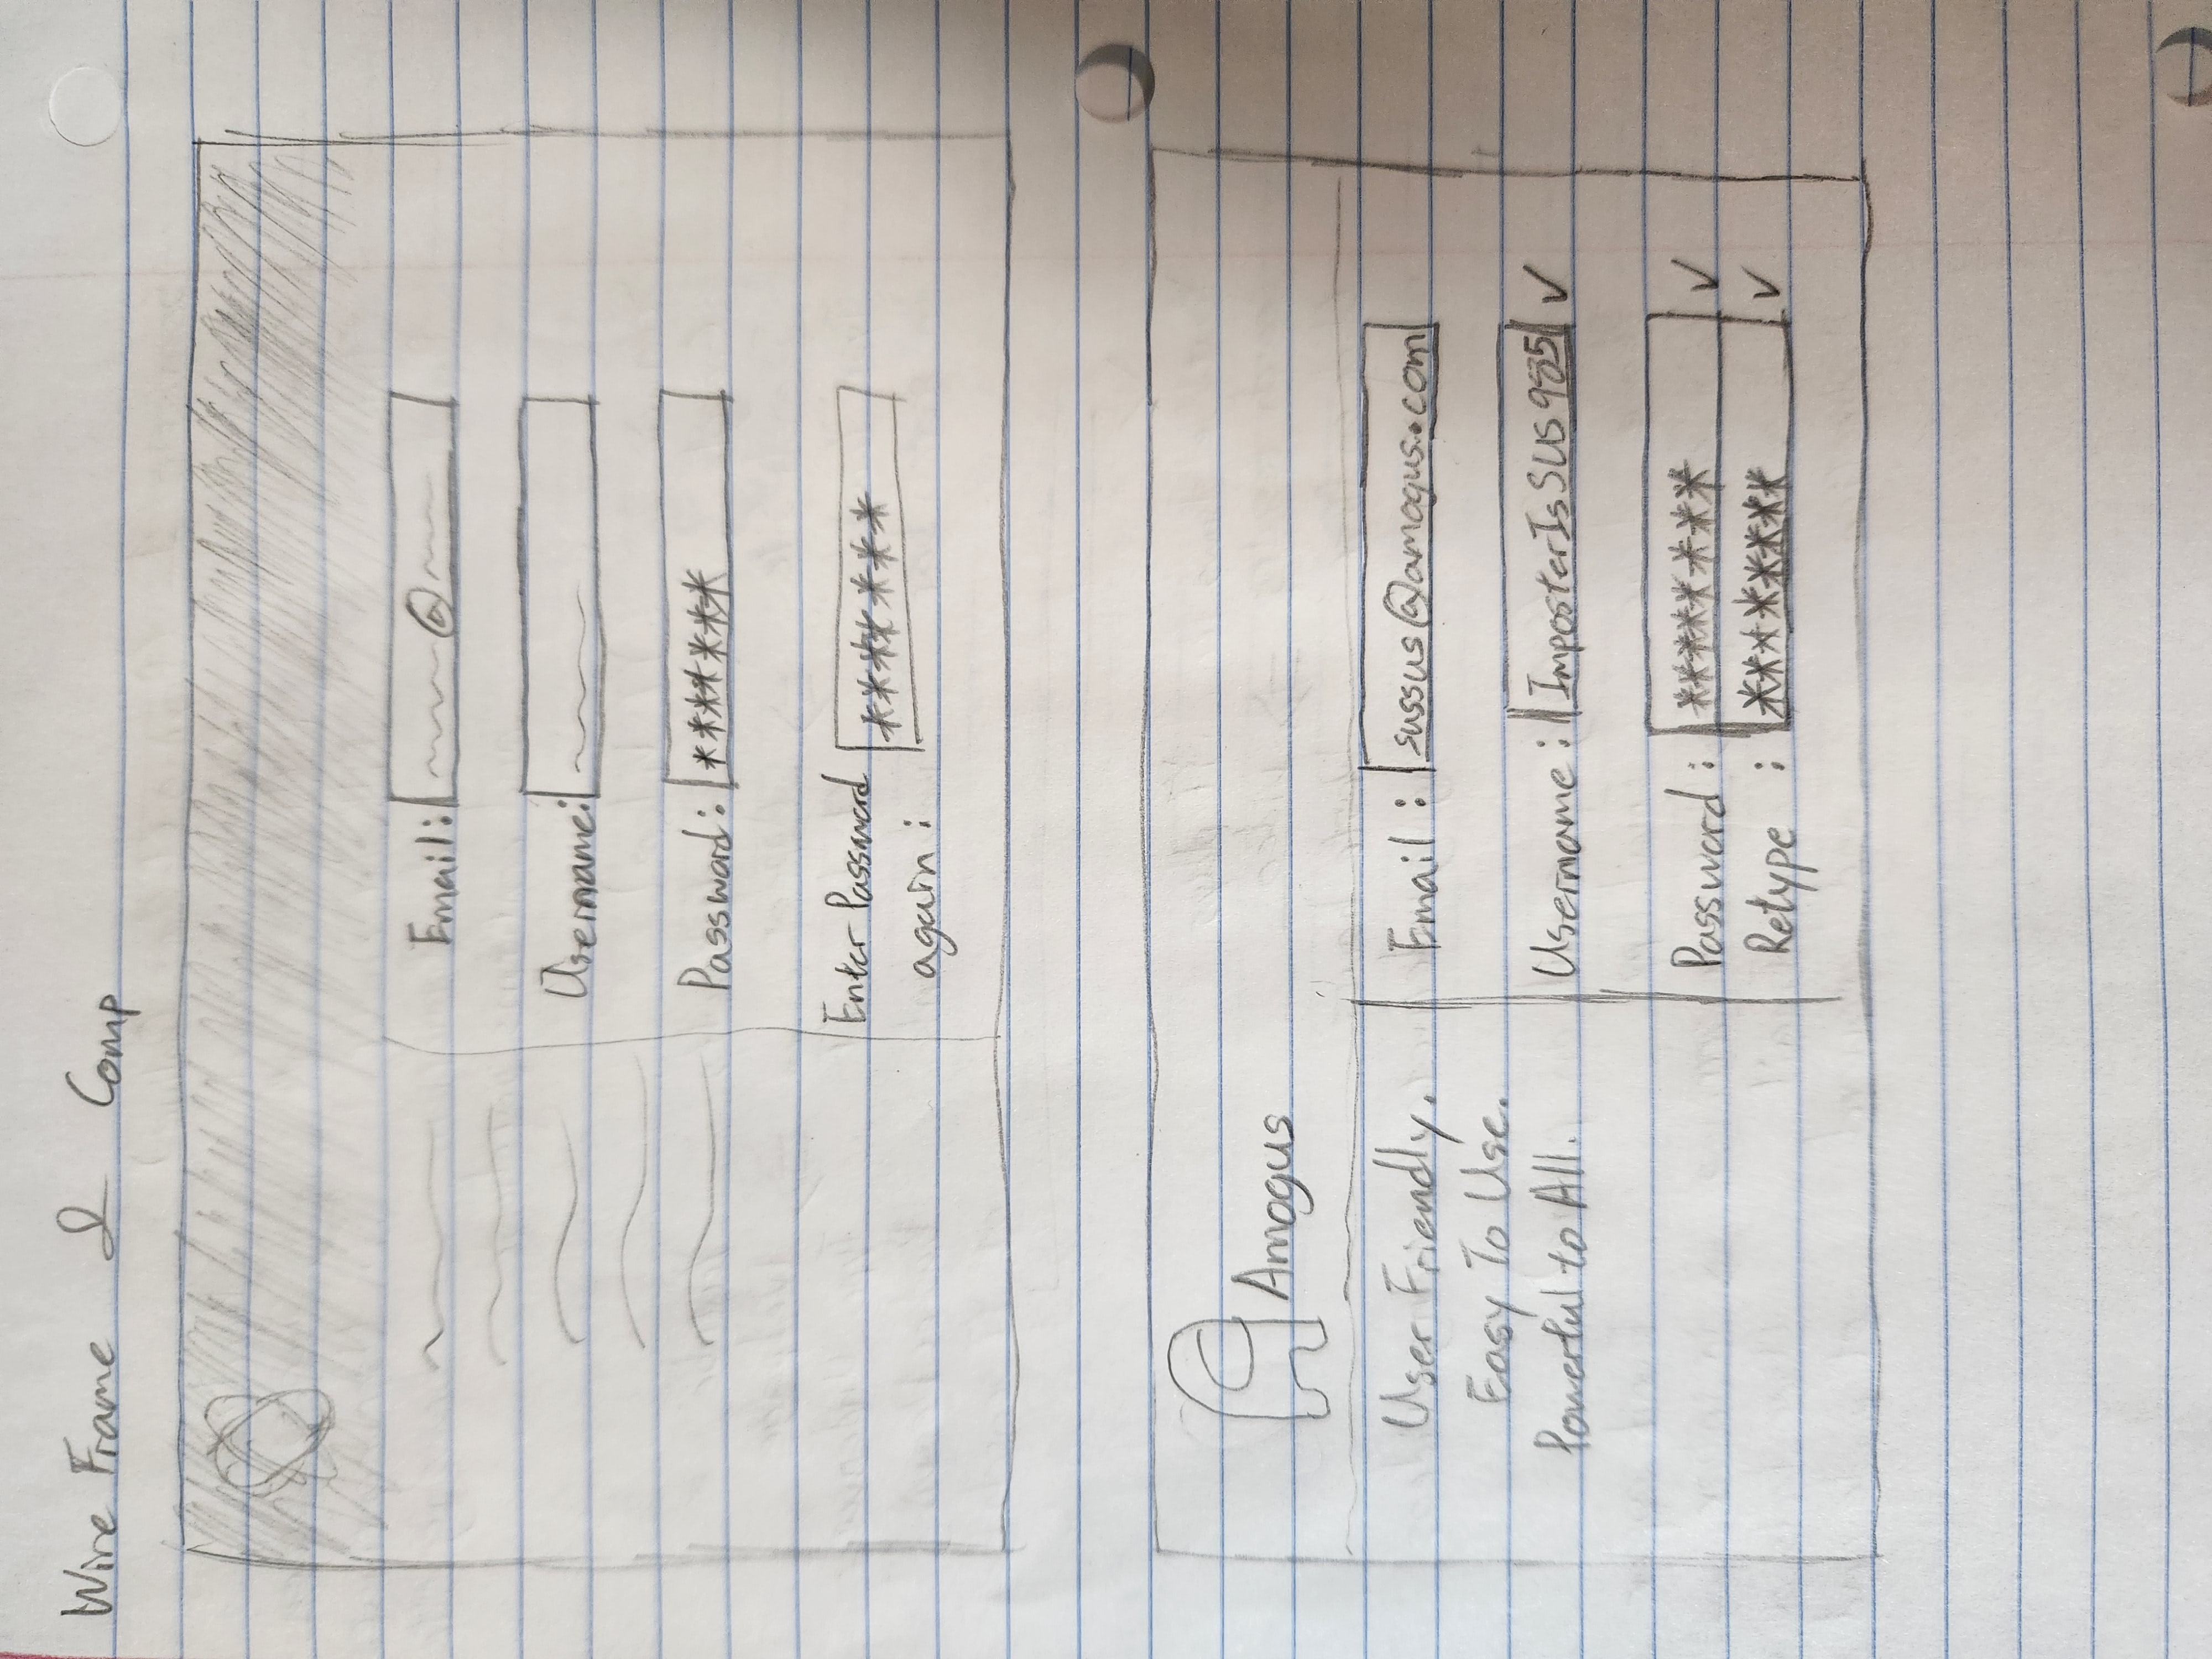 Wire Frame & Comp
Email: @
Username:
Password: *******
Enter Password
again :
Amogus
User Friendly.
Easy To Use.
Powerful to All.
Email : sussus@amogus.com
Username : ImposterIsSUS985 ✓
Password : ******** ✓
Retype : ******** ✓